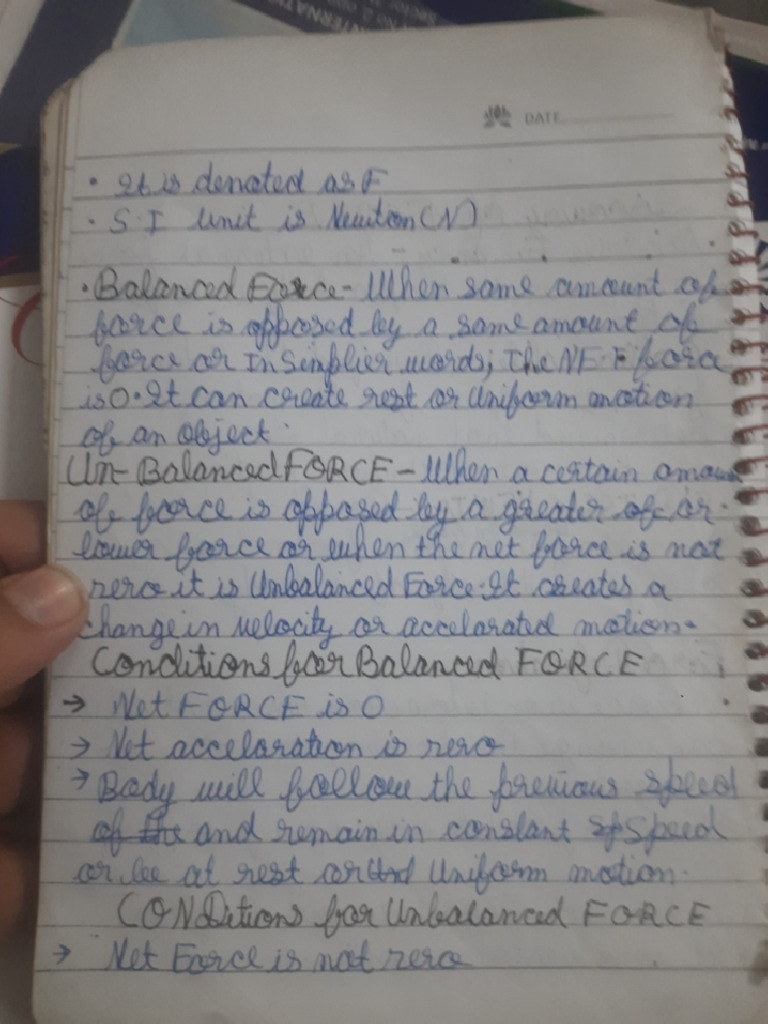 INTERNATI
DATE
• It is denoted as F
• S.I unit is Newton (N)
• Balanced Force - When same amount of
force is opposed by a same amount of
force or In Simplier words; The NET force
is 0. It can create rest or Uniform motion
of an object.
Un-Balanced FORCE - When a certain amoun
of force is opposed by a greater of or
lower force or when the net force is not
zero it is Unbalanced Force. It creates a
change in velocity or accelarated motion.
Conditions for Balanced FORCE
→ Net FORCE is 0
→ Net accelaration is zero
→ Body will follow the previous speed
of the and remain in constant sp Speed
or be at rest or Und Uniform motion.
CONDitions for Unbalanced FORCE
→ Net Force is not zero